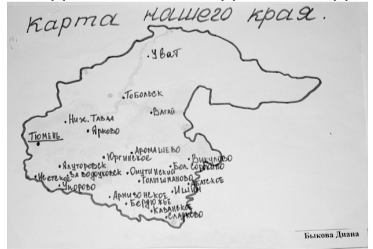 карта нашего края.
Уват
Тобольск
Вагай
Ниж. Тавда
Ярково
Тюмень
Аромашево
Юргинское
Викулово
Ялуторовск
Заводоуковск
Омутинский
Бол. Сорокино
Исетское
Голышманово
Абатское
Упорово
Ишим
Армизонское
Бердюжье
Казанское
Сладково
Быкова Диана